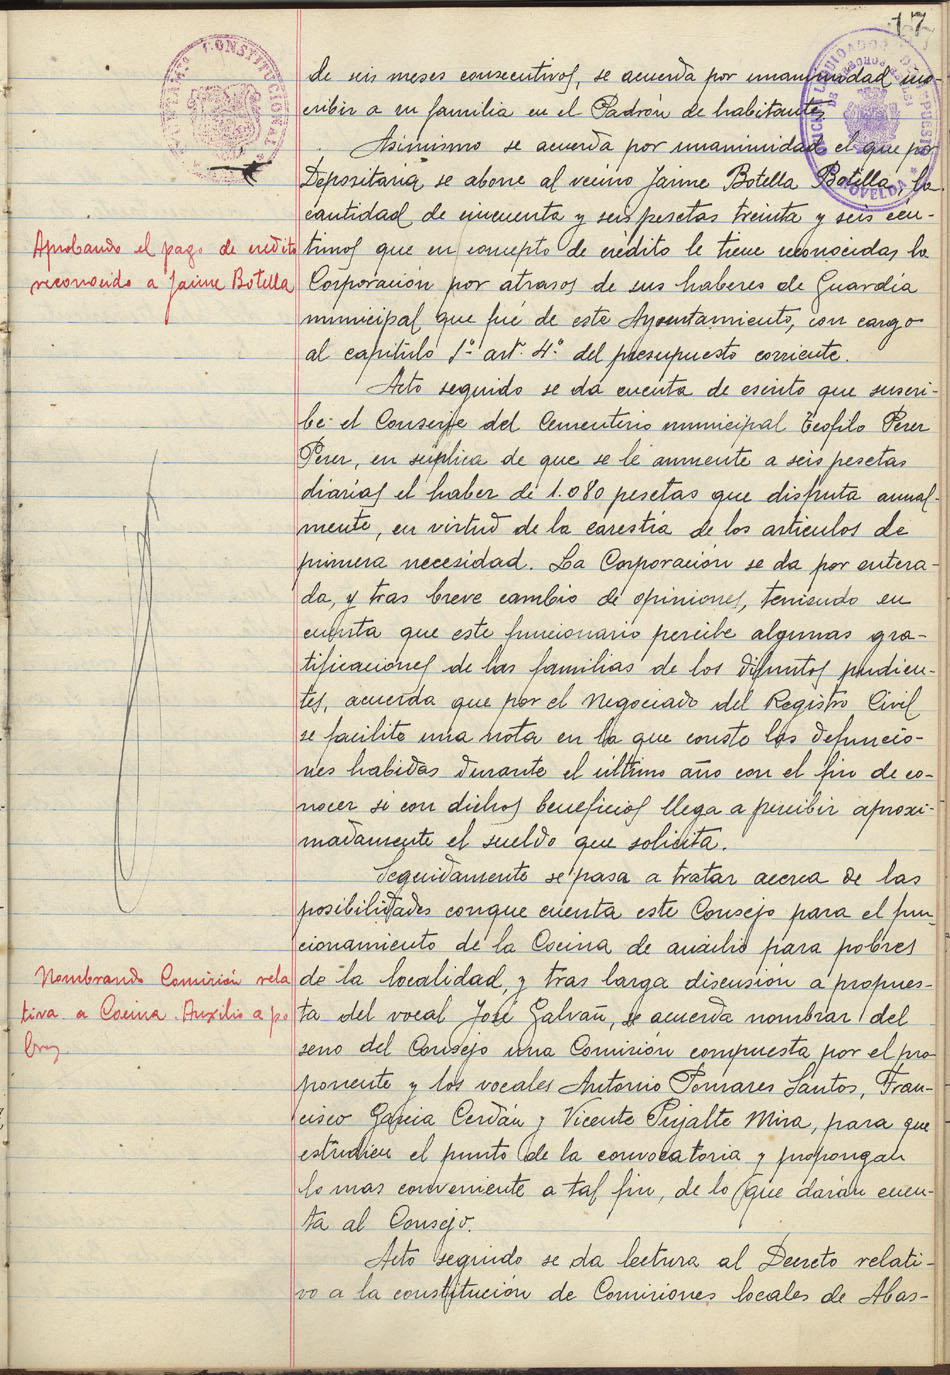 17
AYUNTAMIENTO CONSTITUCIONAL
OFICINA LIQUIDADORA DE
NOVELDA
de seis meses consecutivos, se acuerda por unanimidad ins-
cribir a su familia en el Padrón de habitantes
Asimismo se acuerda por unanimidad el que por
Depositaria se abone al vecino Jaime Botella Botella, la
cantidad de cincuenta y seis pesetas treinta y seis cén-
Aprobando el pago de credito
timos que en concepto de crédito le tiene reconocidas la
reconocido a Jaime Botella
Corporación por atrasos de sus haberes de Guardia
municipal que fué de este Ayuntamiento, con cargo
al capitulo 1º art. 4º del presupuesto corriente.
Acto seguido se da cuenta de escrito que suscri-
be el Conserje del Cementerio municipal Teofilo Perez
Perez, en suplica de que se le aumente a seis pesetas
diarias el haber de 1.080 pesetas que disfruta anual-
mente, en virtud de la carestia de los articulos de
primera necesidad. La Corporación se da por entera-
da, y tras breve cambio de opiniones, teniendo en
cuenta que este funcionario percibe algunas gra-
tificaciones de las familias de los difuntos pudien-
tes, acuerda que por el Negociado del Registro Civil
se facilite una nota en la que conste las defuncio-
nes habidas durante el último año con el fin de co-
nocer si con dichos beneficios llega a percibir aproxi-
madamente el sueldo que solicita.
Seguidamente se pasa a tratar acerca de las
posibilidades conque cuenta este Consejo para el fun-
cionamiento de la Cocina de auxilio para pobres
Nombrando Comisión rela
de la localidad, y tras larga discusión a propues-
tiva a Cocina Auxilio a po
ta del vocal José Galvañ, se acuerda nombrar del
bres
seno del Consejo una Comision compuesta por el pro-
ponente y los vocales Antonio Pomares Santos, Fran-
cisco Garcia Cerdán y Vicente Pujalte Mira, para que
estudien el punto de la convocatoria y propongan
lo mas conveniente a tal fin, de lo que darán cuen-
ta al Consejo.
Acto seguido se da lectura al Decreto relati-
vo a la constitución de Comisiones locales de Abas-